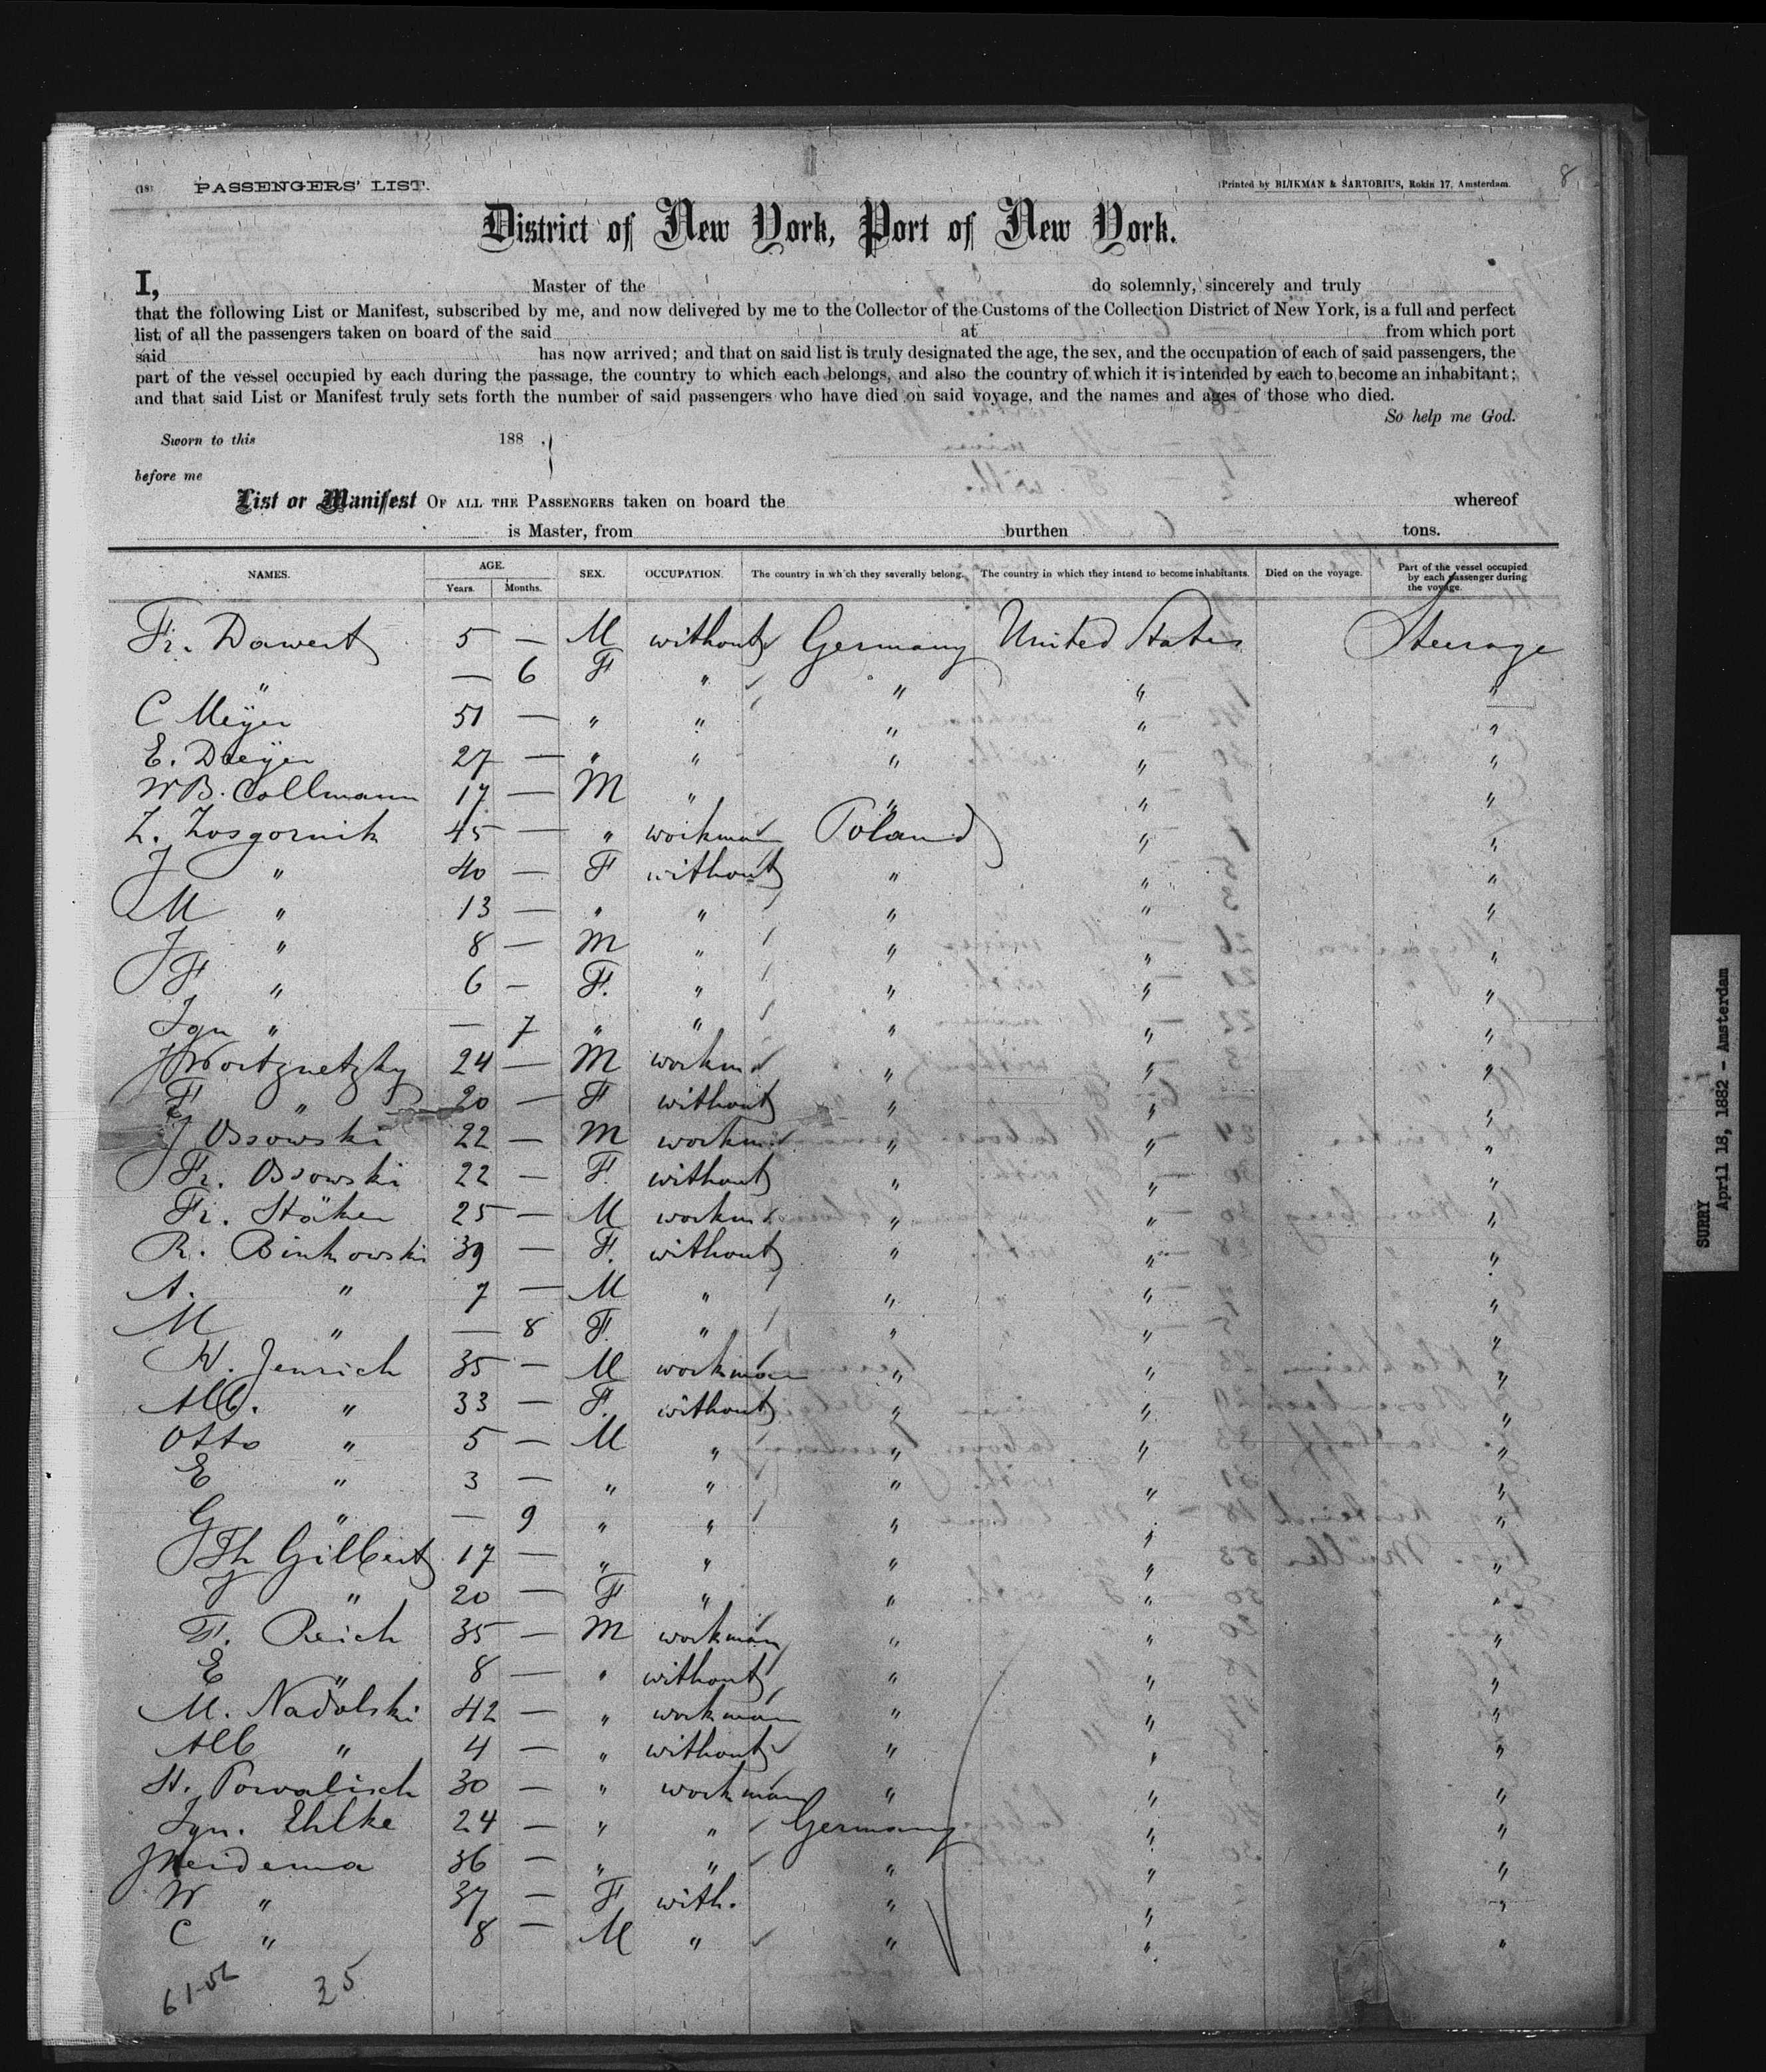 (18) PASSENGERS' LIST. (Printed by BLIKMAN & SARTORIUS, Rokin 17, Amsterdam. 8
District of New York, Port of New York.
I, Master of the do solemnly, sincerely and truly
that the following List or Manifest, subscribed by me, and now delivered by me to the Collector of the Customs of the Collection District of New York, is a full and perfect
list of all the passengers taken on board of the said at from which port
said has now arrived; and that on said list is truly designated the age, the sex, and the occupation of each of said passengers, the
part of the vessel occupied by each during the passage, the country to which each belongs, and also the country of which it is intended by each to become an inhabitant;
and that said List or Manifest truly sets forth the number of said passengers who have died on said voyage, and the names and ages of those who died.
So help me God.
Sworn to this 188 .
before me
List or Manifest OF ALL THE PASSENGERS taken on board the whereof
is Master, from burthen tons.
NAMES. AGE. Years. Months. SEX. OCCUPATION. The country in which they severally belong. The country in which they intend to become inhabitants. Died on the voyage. Part of the vessel occupied by each passenger during the voyage.
Fr. Dawert 5 — M without Germany United States Steerage
" — 6 F " " " "
C Meÿer 51 — " " " " "
E. Dreÿer 27 — " " " " "
WB. Collmann 17 — M " " " "
Z. Zosgornik 45 — " workman Poland " "
J " 40 — F without " " "
M " 13 — " " " " "
J " 8 — M " " " "
F " 6 — F. " " " "
Ign " — 7 " " " " "
J Wortznetzky 24 — M workm " " "
F " 20 — F without " " "
J Ossowski 22 — M workm " " "
Fr. Ossowski 22 — F. without " " "
Fr. Stöker 25 — M workm " " "
R. Binkowski 39 — F. without " " "
A. " 7 — M " " " "
M " — 8 F. " " " "
W. Jenrich 35 — M workman " " "
Alb. " 33 — F. without " " "
Otto " 5 — M " " " "
E " 3 — " " " " "
G " — 9 " " " " "
Th Gilbert 17 — " " " " "
J " 20 — F " " " "
F. Reich 35 — M workman " " "
E " 8 — " without " " "
M. Nadolski 42 — " workman " " "
Alb " 4 — " without " " "
St. Powalisch 30 — " workman " " "
Ign. Ehlke 24 — " " Germany " "
J Meidema 36 — " " " " "
W " 37 — F with. " " "
C " 8 — M " " " "
35
SURRY
April 18, 1882 - Amsterdam